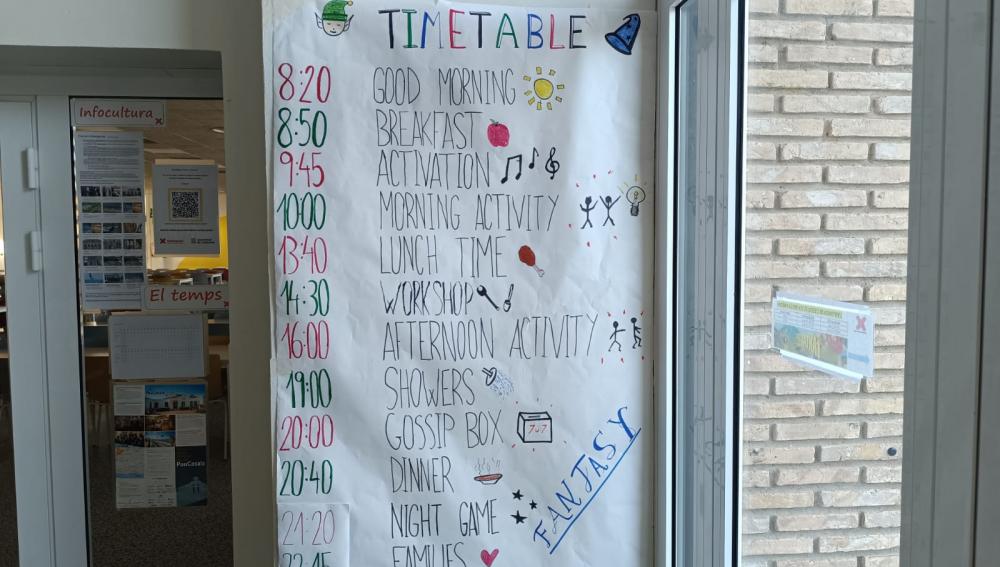 TIMETABLE
8:20 GOOD MORNING
8:50 BREAKFAST
9:45 ACTIVATION
10:00 MORNING ACTIVITY
13:40 LUNCH TIME
14:30 WORKSHOP
16:00 AFTERNOON ACTIVITY
19:00 SHOWERS
20:00 GOSSIP BOX
20:40 DINNER
21:20 NIGHT GAME
22:45 FAMILIES
FANTASY
Infocultura
El temps